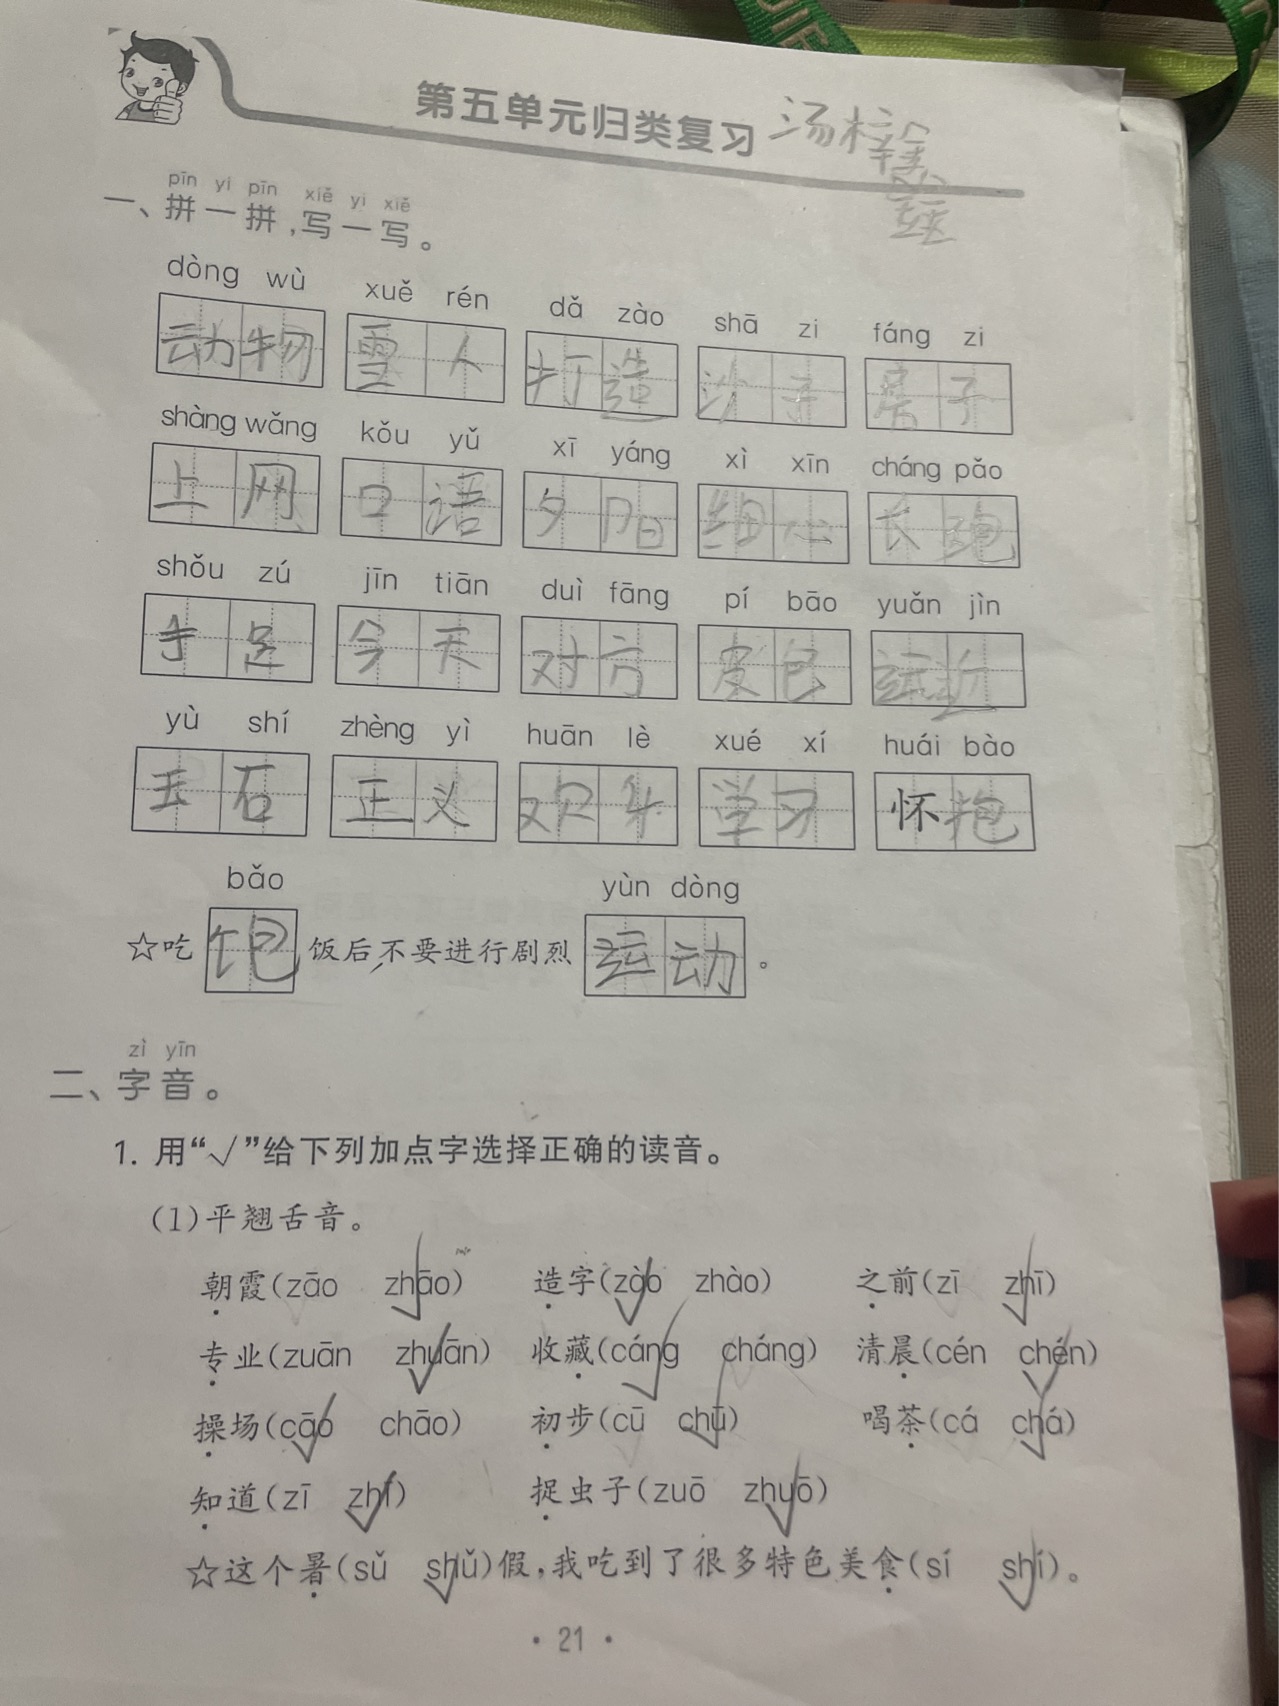 第五单元归类复习 汤梓鑫
pīn yi pīn xiě yi xiě
一、拼一拼,写一写。
dòng wù xuě rén dǎ zào shā zi fáng zi
动物 雪人 打造 沙子 房子
shàng wǎng kǒu yǔ xī yáng xì xīn cháng pǎo
上网 口语 夕阳 细心 长跑
shǒu zú jīn tiān duì fāng pí bāo yuǎn jìn
手足 今天 对方 皮包 远近
yù shí zhèng yì huān lè xué xí huái bào
玉石 正义 欢乐 学习 怀抱
bǎo yùn dòng
☆吃饱饭后,不要进行剧烈运动。
zì yīn
二、字音。
1. 用“√”给下列加点字选择正确的读音。
(1)平翘舌音。
朝霞(zāo zhāo√) 造字(zào√ zhào) 之前(zī zhī√)
专业(zuān zhuān√) 收藏(cáng√ cháng) 清晨(cén chén√)
操场(cāo√ chāo) 初步(cū chū√) 喝茶(cá chá√)
知道(zī zhī√) 捉虫子(zuō zhuō√)
☆这个暑(sǔ shǔ√)假,我吃到了很多特色美食(sí shí√)。
· 21 ·